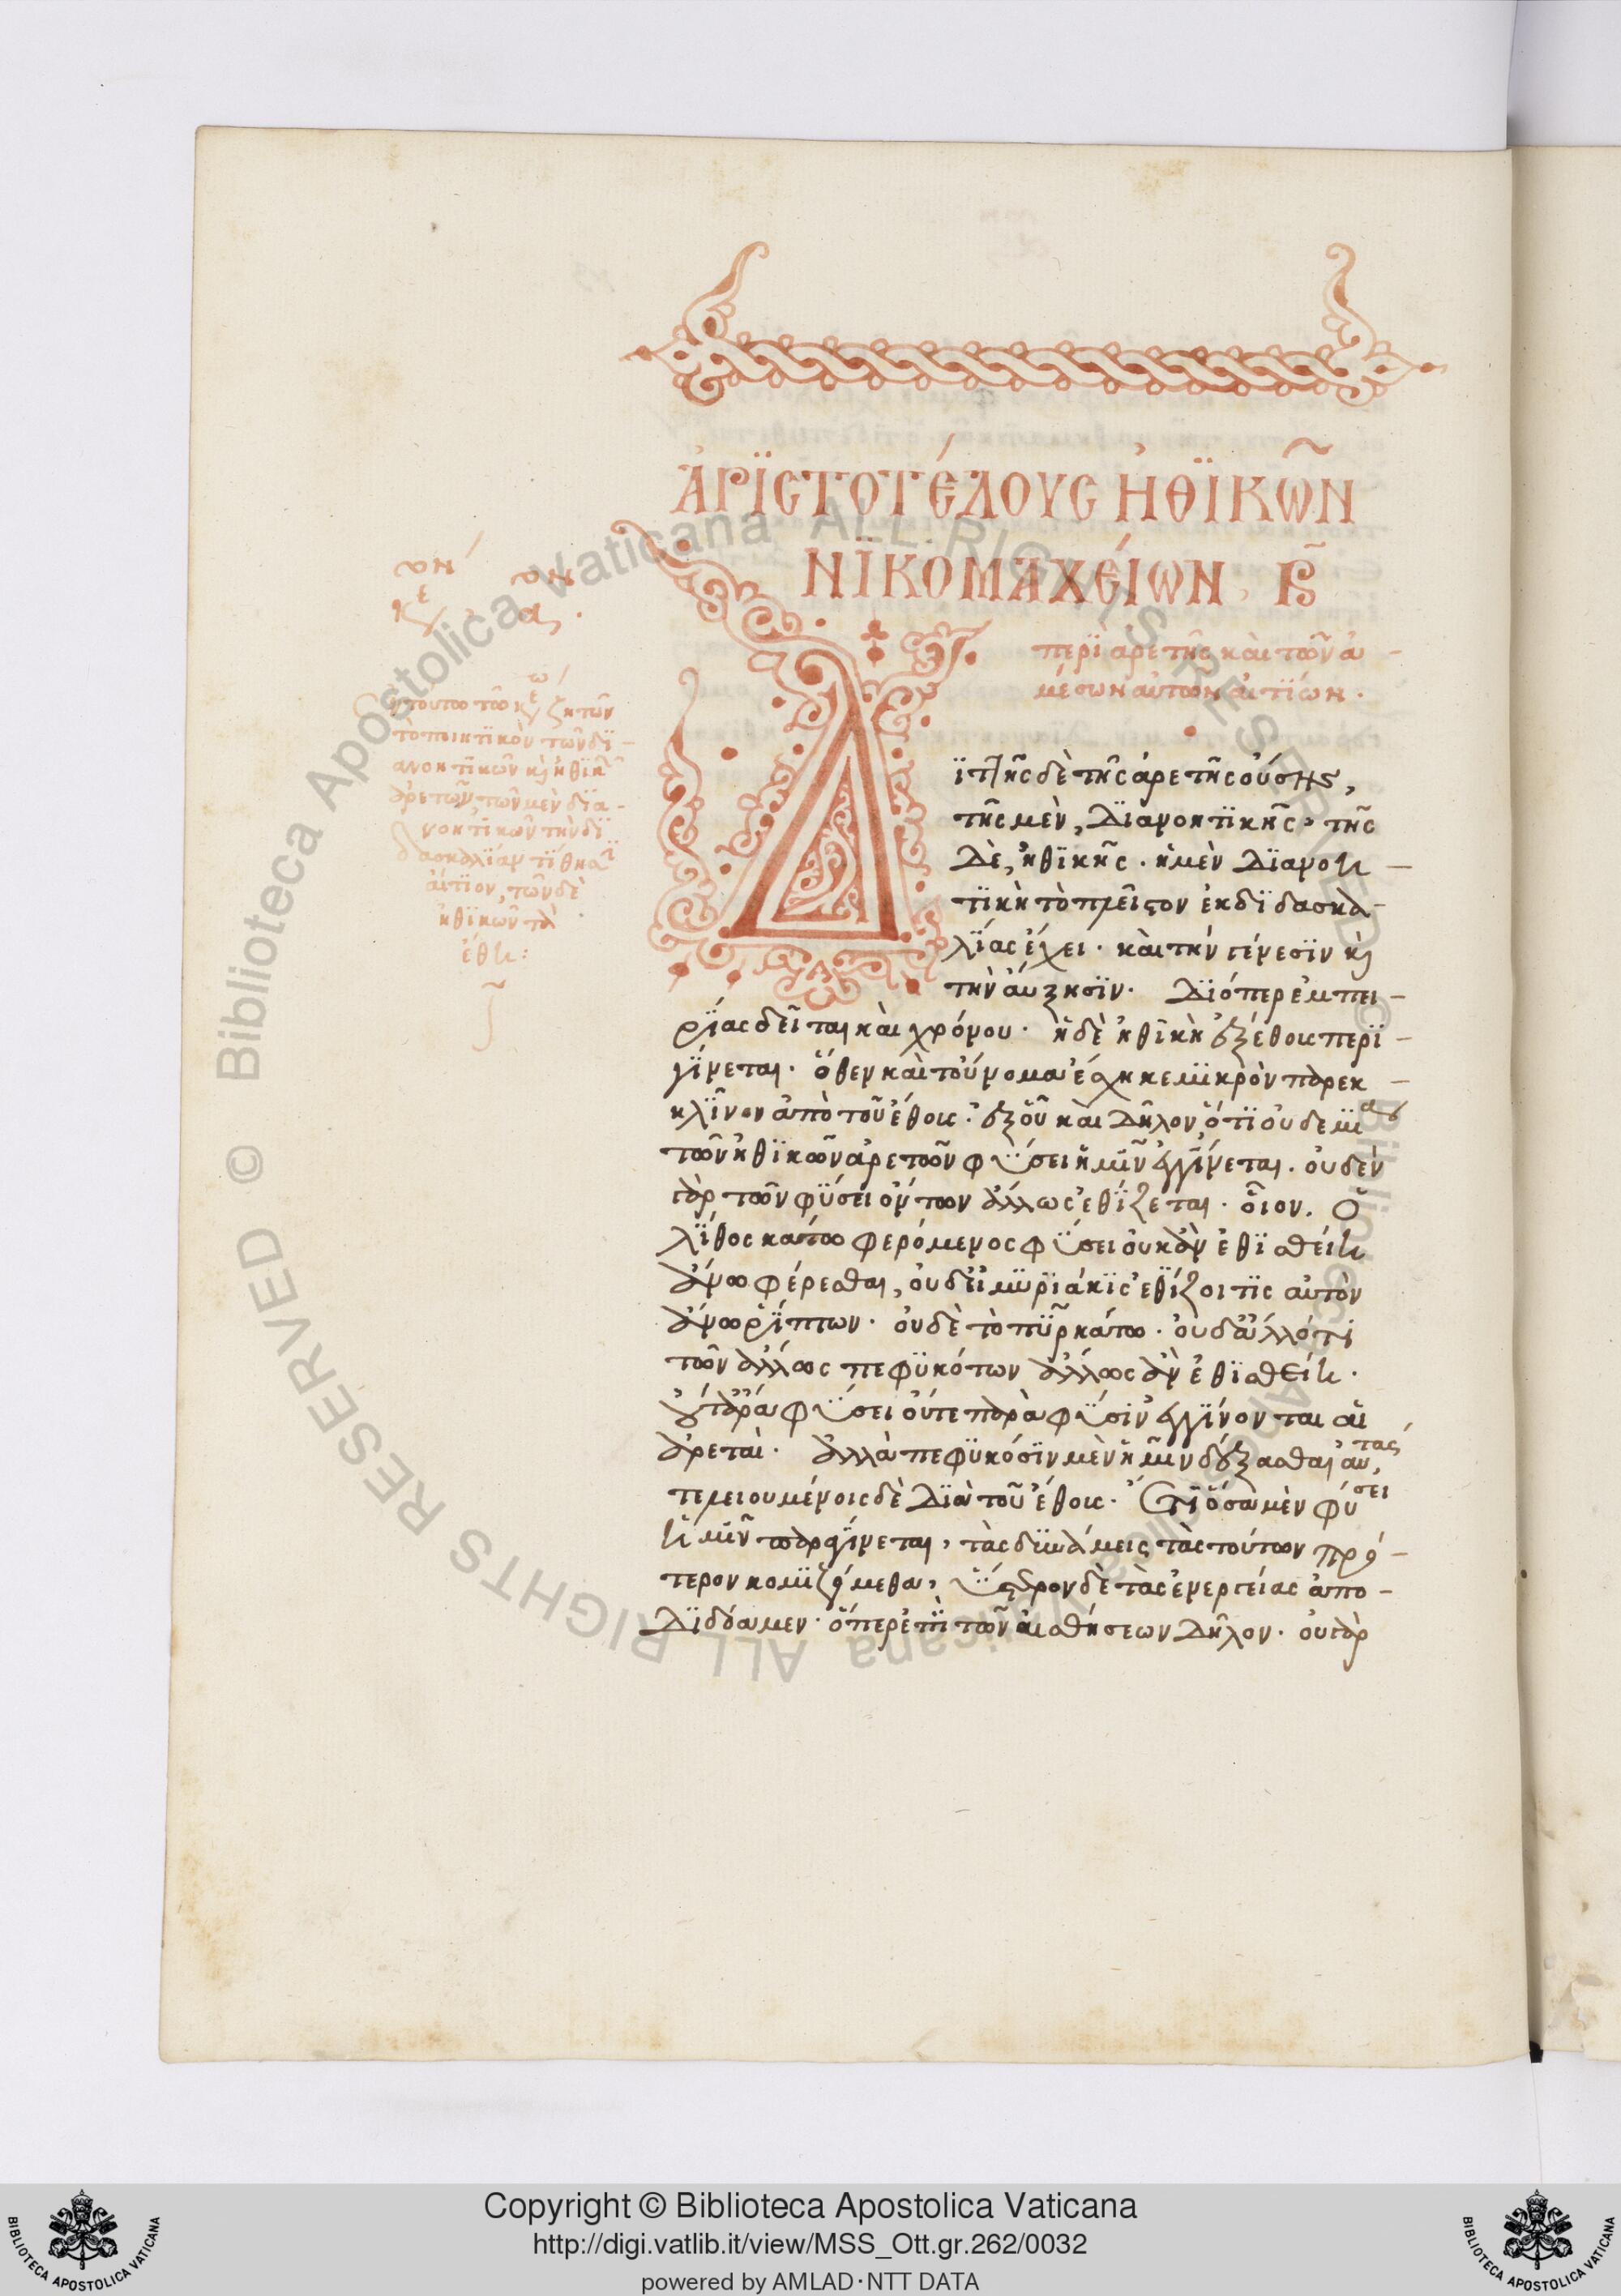 ἀρϊστοτέλους ἠθϊκῶν
νϊκομαχείων, Β
περὶ ἀρετῆς καὶ τῶν ἀ-
μέσων αὐτῶν αἰτϊων.
ϊττῆς δὲ τῆς ἀρετῆς οὔσης,
τῆς μὲν, διανοητϊκῆς, τῆς
δὲ, ἠθϊκῆς. ἡ μὲν διανοη-
τϊκὴ τὸ πλεῖστον ἐκ διδασκα-
λίας ἔχει. καὶ τὴν γένεσϊν κ
τὴν αὔξησϊν. Διόπερ ἐμπει-
ρίας δεῖται καὶ χρόνου. ἡ δὲ ἠθϊκὴ ἐξ ἔθους περϊ-
γίνεται. ὅθεν καὶ τοὔνομα ἔσχηκε μϊκρὸν παρεκ-
κλῖνον ἀπὸ τοῦ ἔθους. ἐξ οὗ καὶ δῆλον, ὅτϊ οὐδεμία
τῶν ἠθϊκῶν ἀρετῶν φύσει ἡμῖν ἐγγίνεται. οὐδὲν
γὰρ τῶν φύσει ὄντων ἄλλως ἐθίζεται. οἷον. ὁ
λίθος κάτω φερόμενος φύσει οὐκ ἂν ἐθισθείη
ἄνω φέρεσθαι, οὐδ' εἰ μυρϊάκϊς ἐθίζοι τϊς αὐτὸν
ἄνω ῥίπτων. οὐδὲ τὸ πῦρ κάτω. οὐδ' ἄλλό τι
τῶν ἄλλως πεφυκότων ἄλλως ἂν ἐθισθείη.
οὔτ' ἄρα φύσει οὔτε παρὰ φύσϊν ἐγγίνονται αἱ
ἀρεταὶ. ἀλλὰ πεφυκόσϊν μὲν ἡμῖν δέξασθαι αὐτάς,
τελειουμένοις δὲ διὰ τοῦ ἔθους. Ἔτϊ ὅσα μὲν φύσει
ἡμῖν παραγίνεται, τὰς δυνάμεις τὰς τούτων πρό-
τερον κομιζόμεθα, ὕστερον δὲ τὰς ἐνεργείας ἀπο-
διδόαμεν. ὅπερ ἐπὶ τῶν αἰσθήσεων δῆλον. οὐ γὰρ
τὸ ποιητϊκὸν τῶν δϊ-
ανοητϊκῶν κ ἠθϊκ
ἀρετῶν, τῶν μὲν δϊα-
νοητϊκῶν τὴν δϊ
δασκαλίαν τίθησι
αἴτϊον, τῶν δὲ
ἠθϊκῶν τὰ
ἔθη:
© Biblioteca Apostolica Vaticana ALL RIGHTS RESERVED © Biblioteca Apostolica Vaticana ALL RIGHTS RESERVED
Copyright © Biblioteca Apostolica Vaticana
http://digi.vatlib.it/view/MSS_Ott.gr.262/0032
powered by AMLAD·NTT DATA
BIBLIOTECA APOSTOLICA VATICANA
BIBLIOTECA APOSTOLICA VATICANA